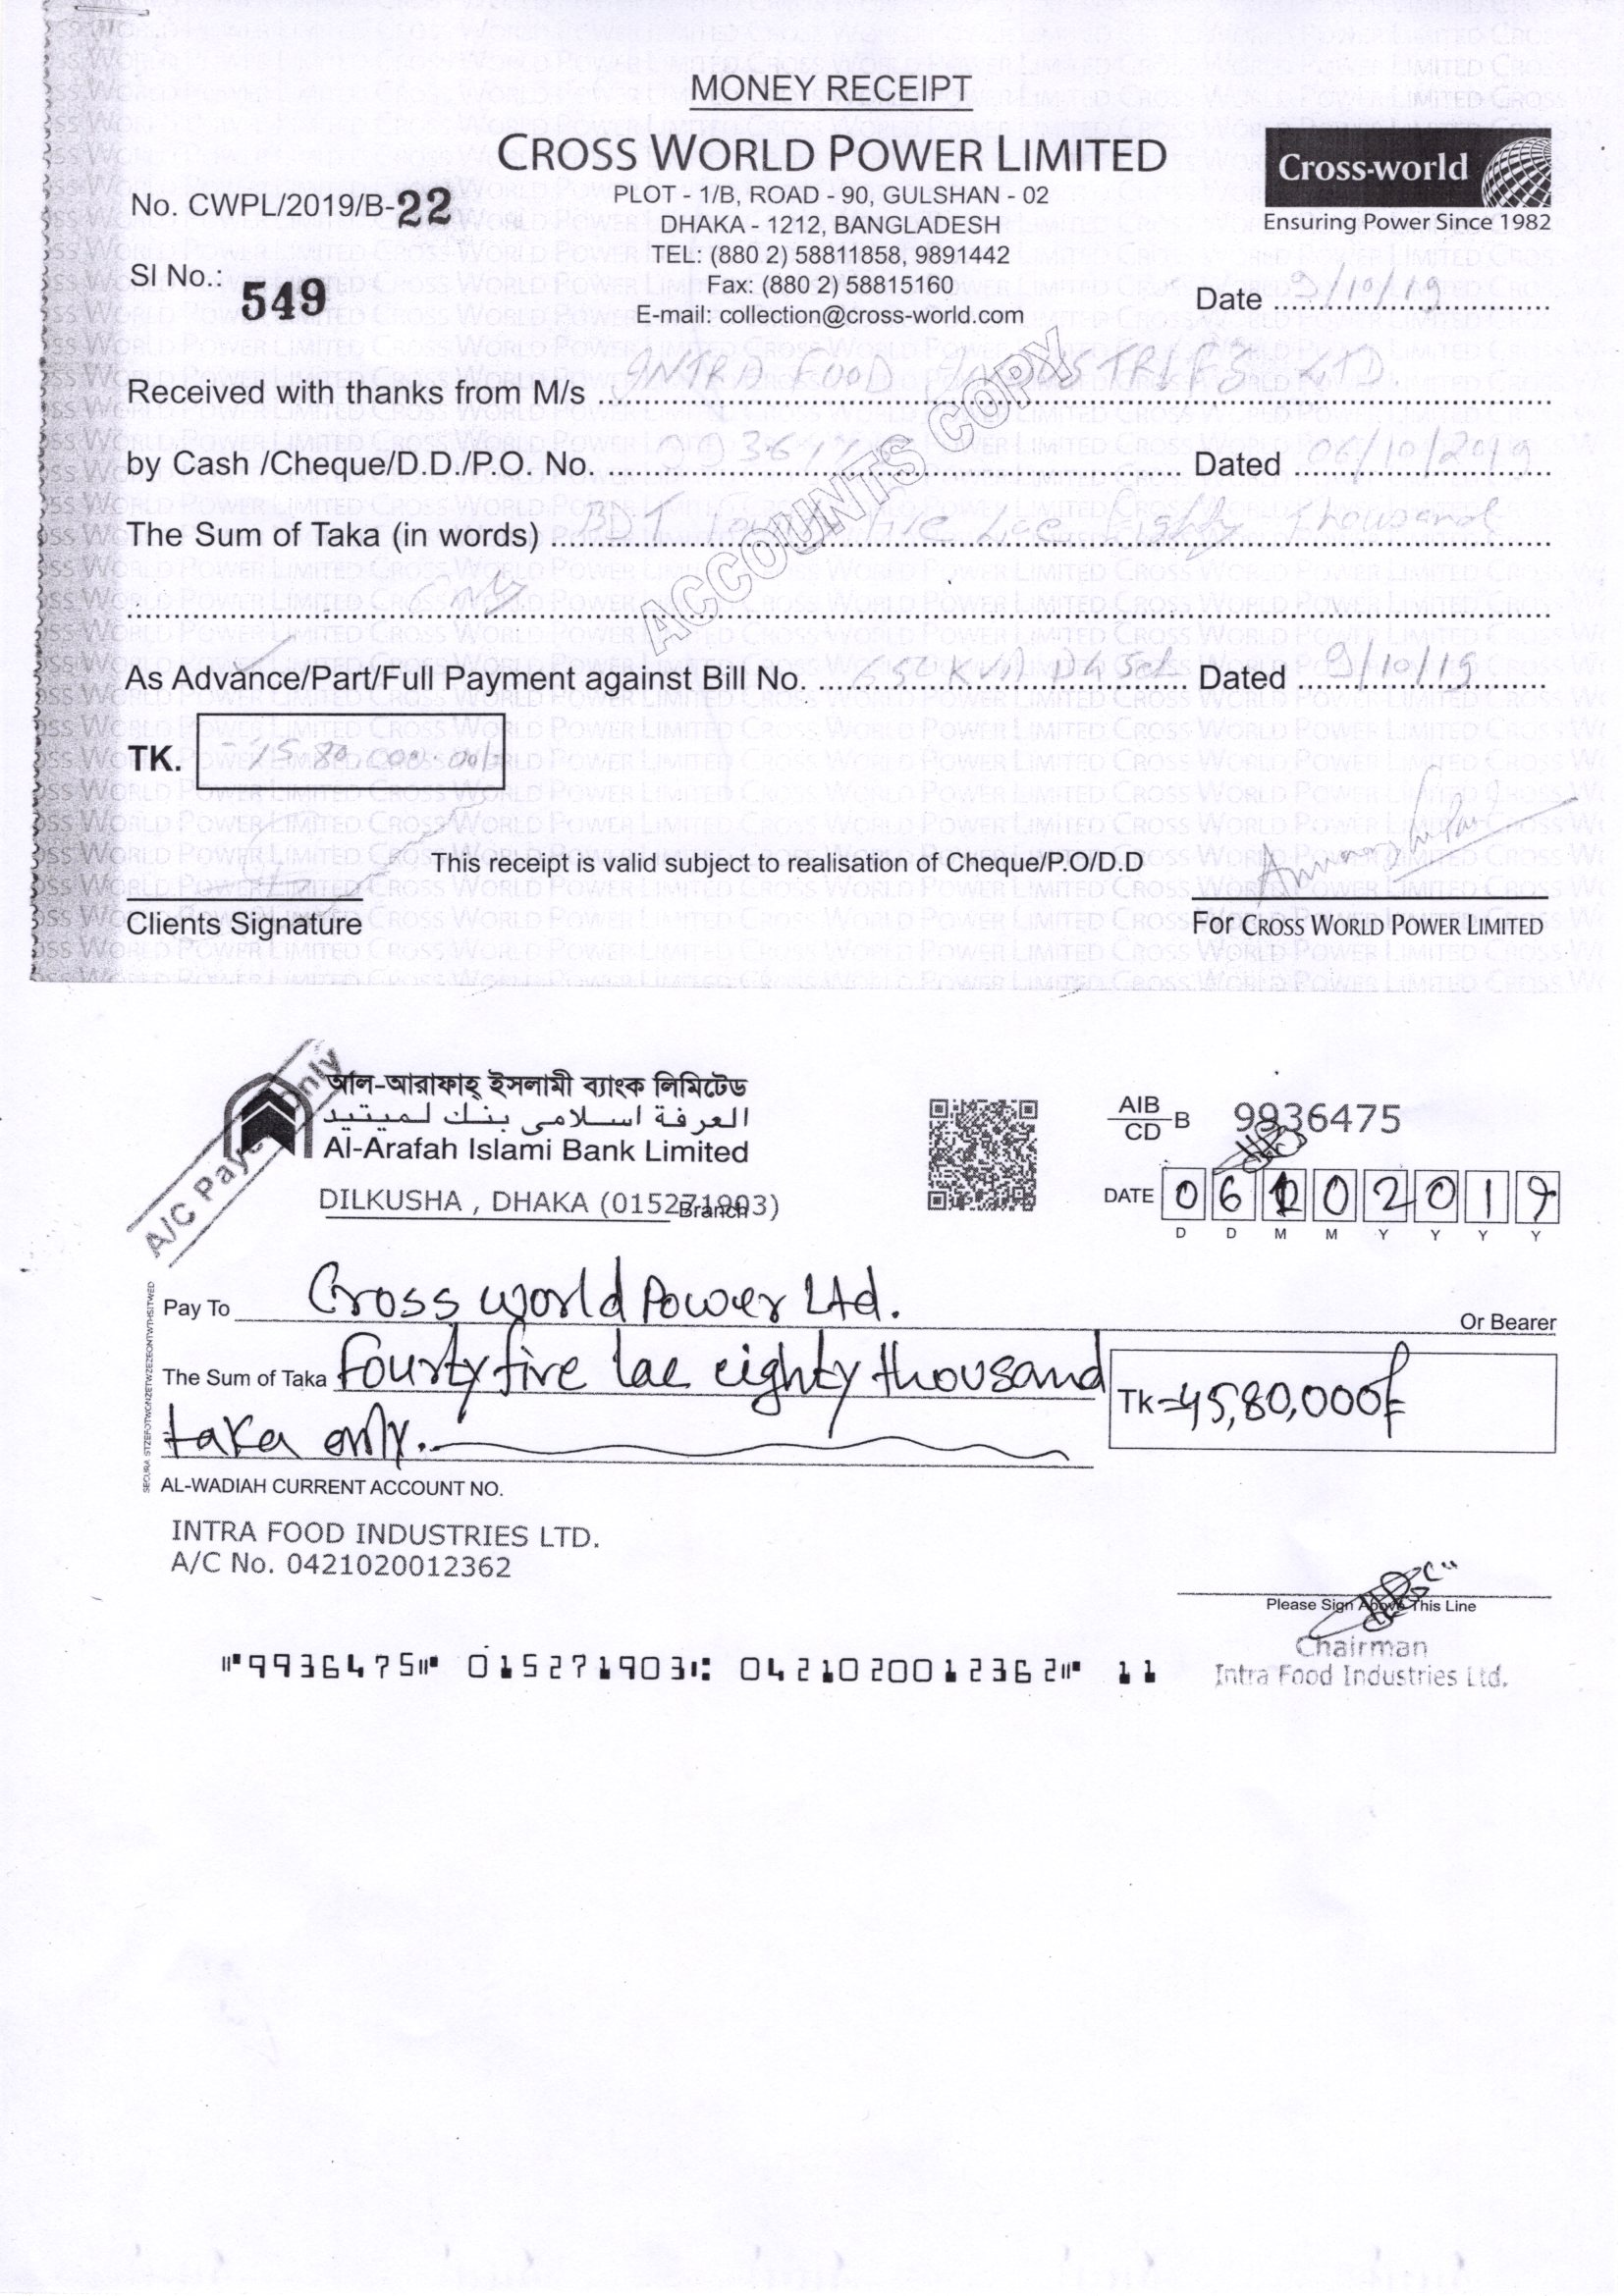 MONEY RECEIPT
CROSS WORLD POWER LIMITED
Cross-world
Ensuring Power Since 1982
No. CWPL/2019/B-22
PLOT - 1/B, ROAD - 90, GULSHAN - 02
DHAKA - 1212, BANGLADESH
TEL: (880 2) 58811858, 9891442
Sl No.: 549
Fax: (880 2) 58815160
E-mail: collection@cross-world.com
Date 9/10/19
Received with thanks from M/s INTRA FOOD INDUSTRIES LTD.
by Cash /Cheque/D.D./P.O. No. Dated 06/10/2019
The Sum of Taka (in words) BDT Five Lac Eighty Thousand
ACCOUNTS COPY
As Advance/Part/Full Payment against Bill No. Dated 9/10/19
TK.
This receipt is valid subject to realisation of Cheque/P.O/D.D
Clients Signature
For CROSS WORLD POWER LIMITED
A/C Payee Only
আল-আরাফাহ্ ইসলামী ব্যাংক লিমিটেড
العرفة اسلامى بنك لميتيد
Al-Arafah Islami Bank Limited
AIB
CD B 9936475
DILKUSHA , DHAKA (015271903)
Branch
DATE 06102019
D D M M Y Y Y Y
Pay To Cross world Power Ltd.
Or Bearer
The Sum of Taka Fourty five lac eighty thousand
Tk=45,80,000/=
taka only.
AL-WADIAH CURRENT ACCOUNT NO.
INTRA FOOD INDUSTRIES LTD.
A/C No. 0421020012362
Please Sign Above This Line
Chairman
Intra Food Industries Ltd.
⑈9936475⑈ 015271903⑆ 0421020012362⑈ 11